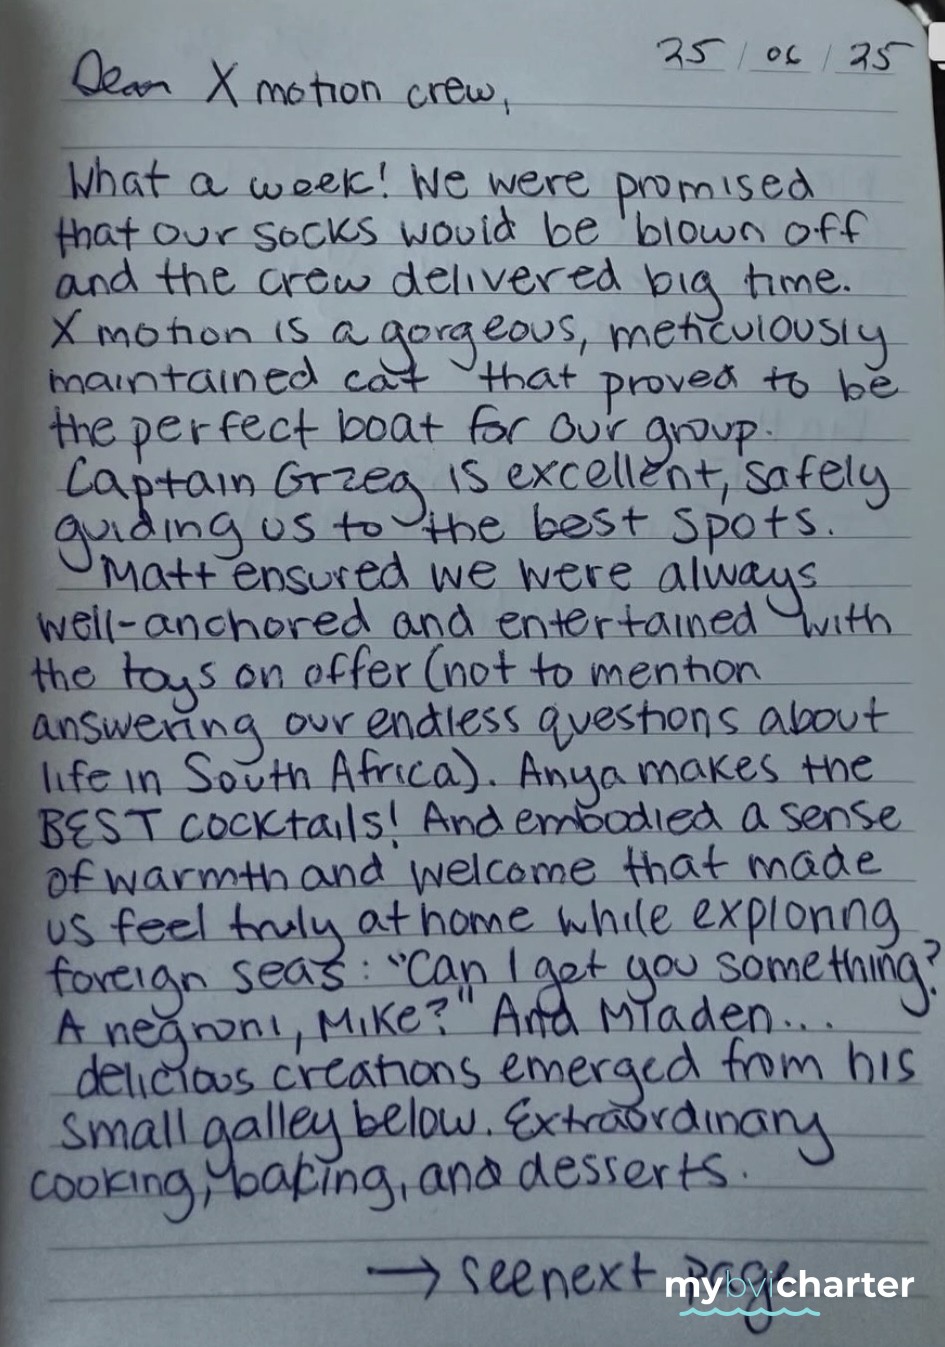 25 / 06 / 25
Dear X motion crew,
What a week! We were promised
that our socks would be blown off
and the crew delivered big time.
X motion is a gorgeous, meticulously
maintained cat that proved to be
the perfect boat for our group.
Captain Grzeg is excellent, safely
guiding us to the best spots.
Matt ensured we were always
well-anchored and entertained with
the toys on offer (not to mention
answering our endless questions about
life in South Africa). Anya makes the
BEST cocktails! And embodied a sense
of warmth and welcome that made
us feel truly at home while exploring
foreign seas: "Can I get you something?
A negroni, Mike?" And Mladen...
delicious creations emerged from his
small galley below. Extraordinary
cooking, baking, and desserts.
→ see next page
mybvicharter